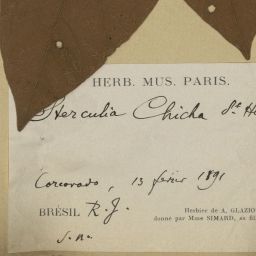 HERB. MUS. PARIS.
Sterculia Chicha St. H
Corcovado, 13 février 1891
BRÉSIL R. J.
Herbier de A. GLAZIO
donné par Mme SIMARD, sa fil
s. n.